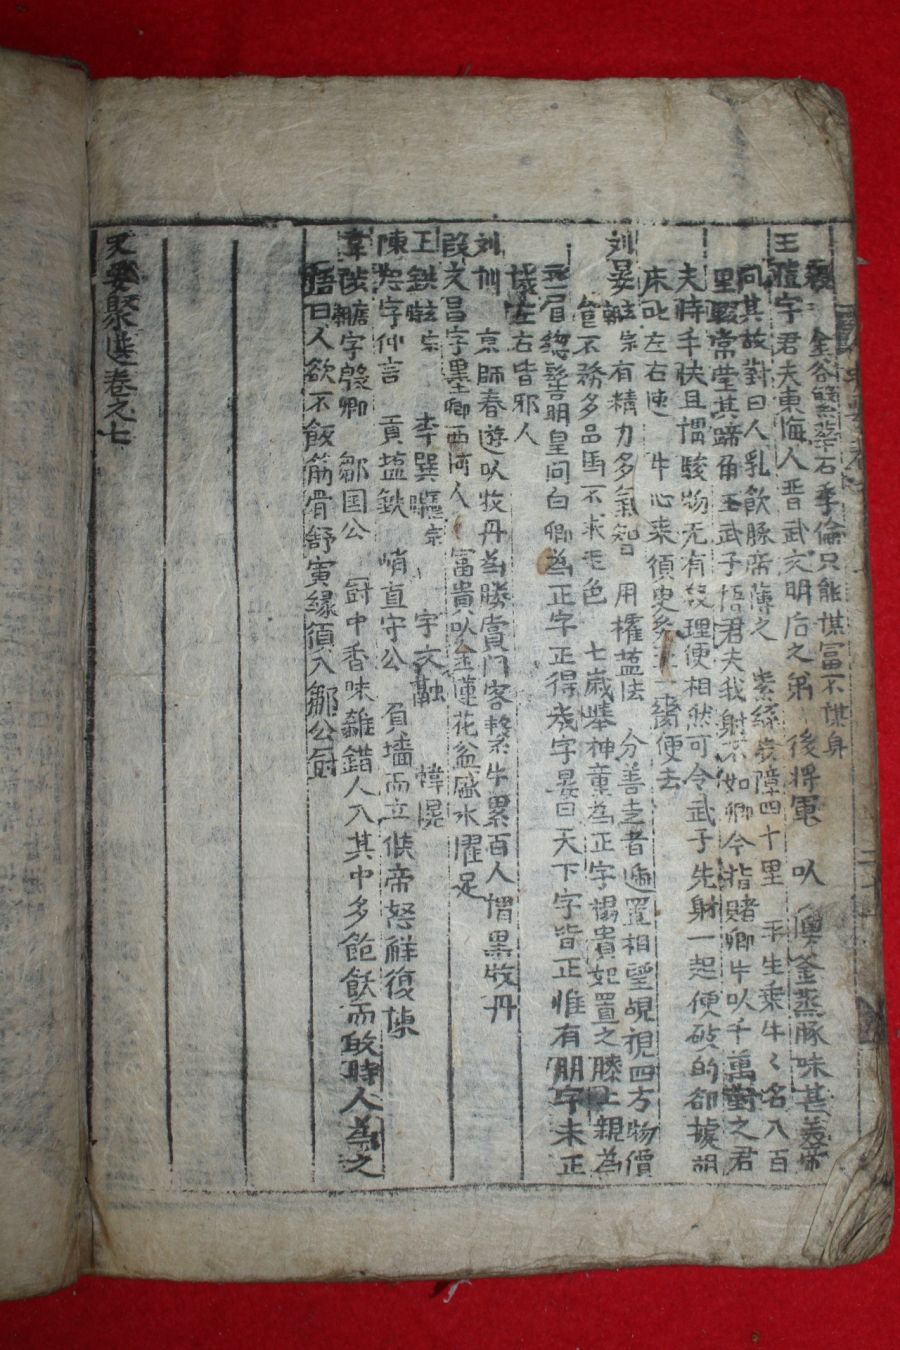 金谷 石季倫只能謀富不謀身
王愷字君夫東海人晋武文明后之弟 後將軍 以 釜蒸豚味甚美帝
問其故對曰人乳飮豚帝薄之 紫絲步障四十里 平生乘牛〻名八百
里 常瑩其蹄角王武子語君夫我射不如卿今指賭卿牛以千萬對之君
夫恃手快且謂駿物无有殺理便相然可令武子先射一起便破的却據胡
床叱左右速 牛心来須臾 便去
刘晏 宗有精力多氣智 用權塩法 分善走者 置相望覘視四方物價
不務多品馬不求毛色 七歲擧神童為正字楊貴妃置之膝上親為
眉 髻明皇問曰卿為正字正得幾字晏曰天下字皆正惟有朋字未正
左右皆邪人
刘訓 京師春遊以牧丹為勝賞訓客繫牛累百人謂黒牧丹
段文昌字墨卿西河人 富貴以金蓮花盆盛水濯足
王鉄 宗 李巽 宗 宇文融 韓滉
陳恕字仲言 貢塩鉄 峭直守公 負墻而立候帝怒觧復陳
韋陟 字殷卿 鄒国公 厨中香味雜錯人入其中多飽飫而 時人為之
語曰人欲不飯筋骨舒寅縁須入鄒公厨
史要聚選卷之七